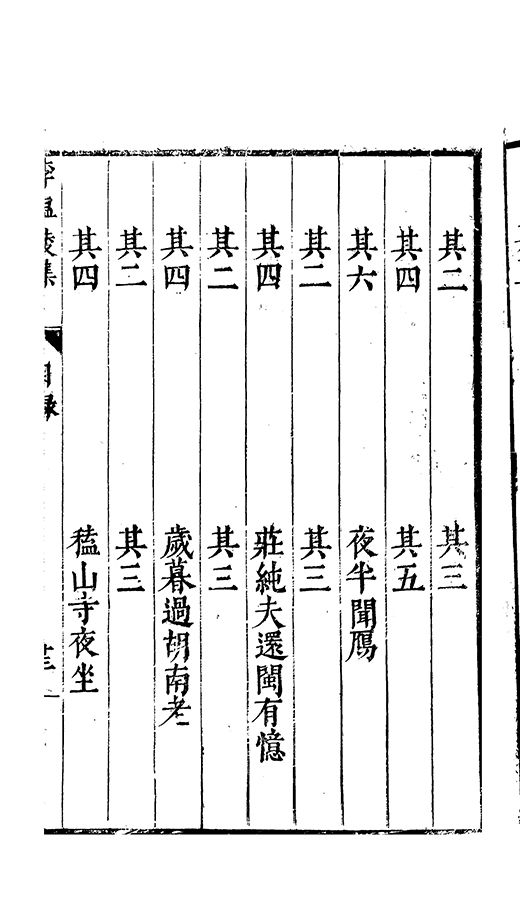 其二 其三
其四 其五
其六 夜半聞鴈
其二 其三
其四 莊純夫還閩有憶
其二 其三
其四 歲暮過胡南老
其二 其三
其四 𥡴山寺夜坐
李溫陵集 目錄